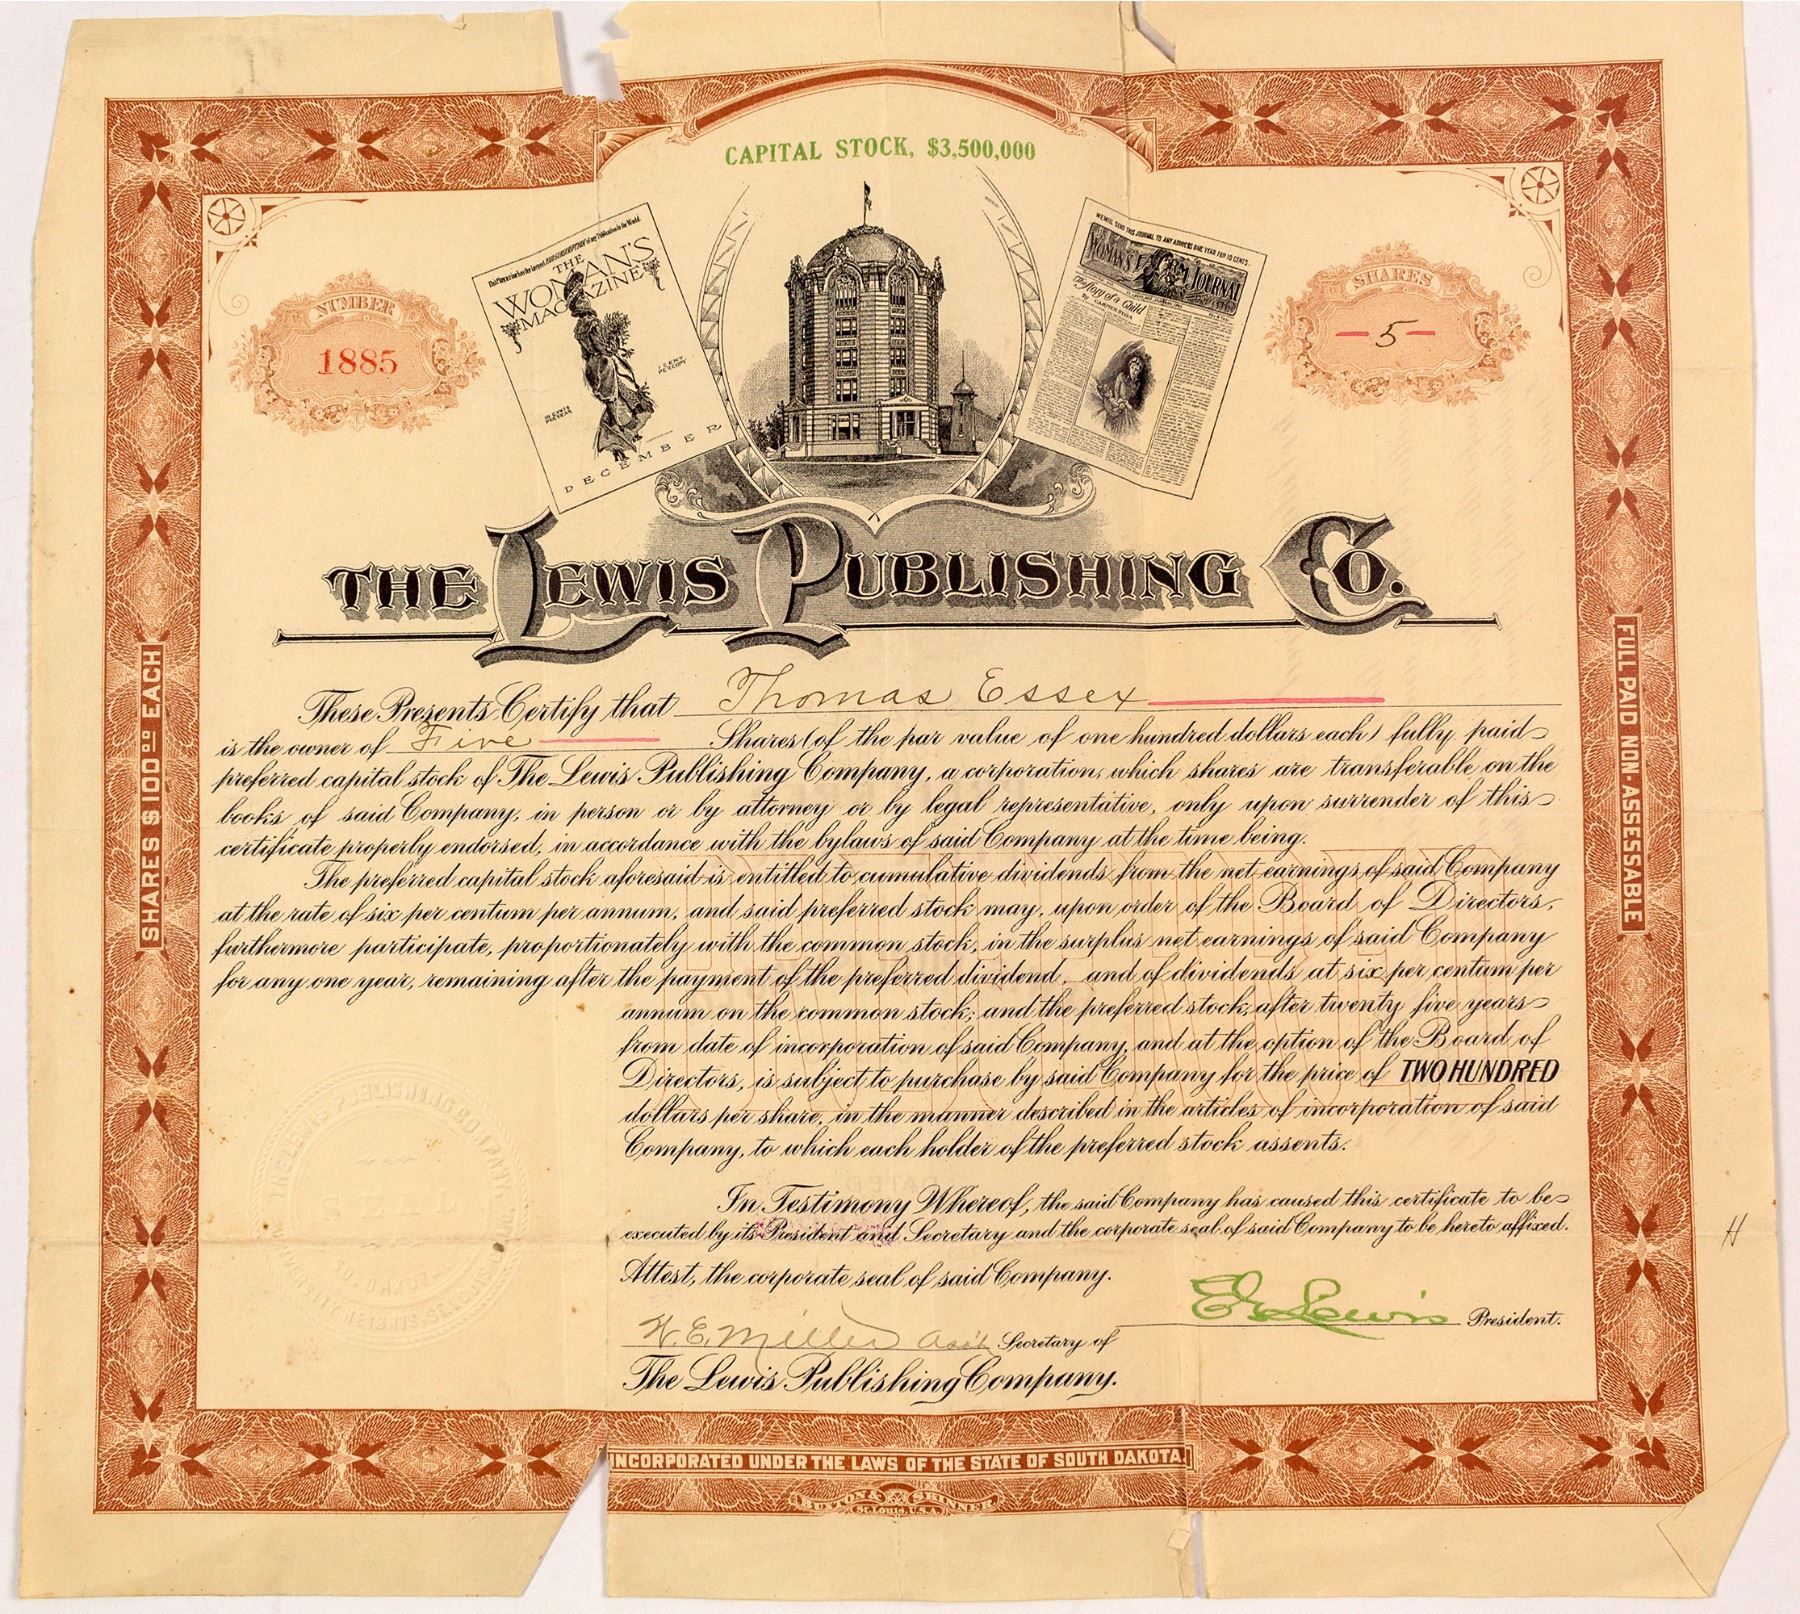 CAPITAL STOCK, $3,500,000
THE
WOMAN'S
MAGAZINE
1 CENT
PER COPY
10 CENTS
PER YEAR
DECEMBER
WE WILL SEND THIS JOURNAL TO ANY ADDRESS ONE YEAR FOR 10 CENTS.
WOMAN'S FARM JOURNAL
The Story of a Child
NUMBER
1885
SHARES
5
THE LEWIS PUBLISHING CO.
These Presents Certify that Thomas Essex
is the owner of Five Shares (of the par value of one hundred dollars each) fully paid
preferred capital stock of The Lewis Publishing Company, a corporation, which shares are transferable on the
books of said Company, in person or by attorney or by legal representative, only upon surrender of this
certificate properly endorsed, in accordance with the bylaws of said Company at the time being.
The preferred capital stock aforesaid is entitled to cumulative dividends from the net earnings of said Company
at the rate of six per centum per annum, and said preferred stock may, upon order of the Board of Directors,
furthermore participate, proportionately with the common stock, in the surplus net earnings of said Company
for any one year, remaining after the payment of the preferred dividend, and of dividends at six per centum per
annum on the common stock; and the preferred stock, after twenty five years
from date of incorporation of said Company, and at the option of the Board of
Directors, is subject to purchase by said Company for the price of TWO HUNDRED
dollars per share, in the manner described in the articles of incorporation of said
Company, to which each holder of the preferred stock assents.
In Testimony Whereof, the said Company has caused this certificate to be
executed by its President and Secretary and the corporate seal of said Company to be hereto affixed.
Attest, the corporate seal of said Company.
E G Lewis President.
H. E. Miller Ass't Secretary of
The Lewis Publishing Company.
SHARES $100.00 EACH
FULL PAID NON-ASSESSABLE
THE LEWIS PUBLISHING COMPANY
SO. DAKOTA
H
INCORPORATED UNDER THE LAWS OF THE STATE OF SOUTH DAKOTA.
BUXTON & SKINNER
St. Louis, U.S.A.